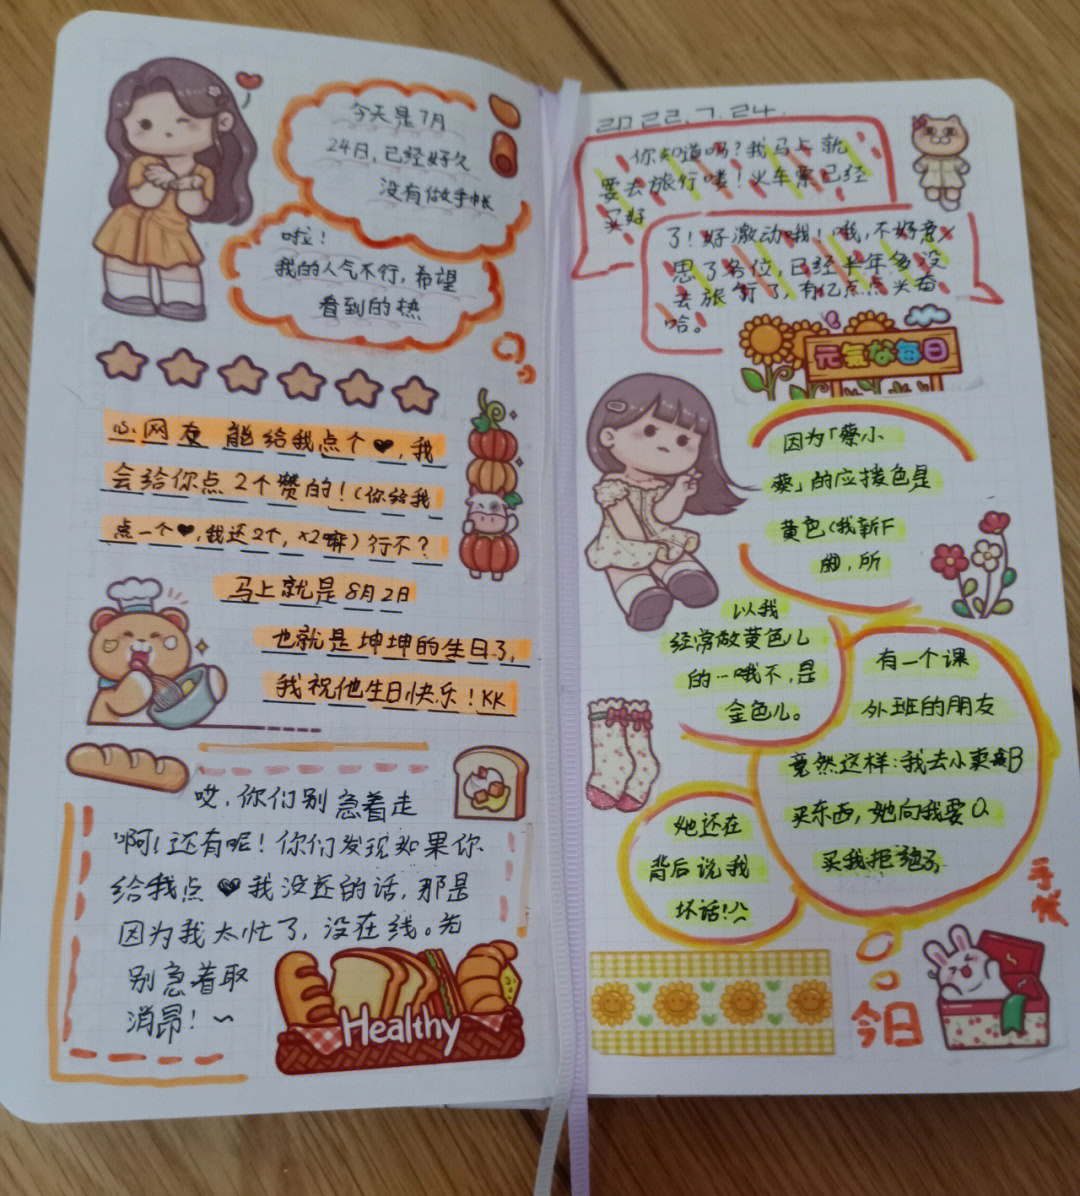 今天是7月
24日,已经好久
没有做手帐
啦!
我的人气不行,希望
看到的热
心网友 能给我点个♥,我
会给你点2个赞的!(你给我
点一个♥,我还2个,×2嘛)行不?
马上就是8月2日
也就是坤坤的生日了,
我祝他生日快乐!KK
哎,你们别急着走
啊!还有呢!你们发现如果你
给我点♥我没还的话,那是
因为我太忙了,没在线。先
别急着取
消昂!~
Healthy
2022.7.24.
你知道吗?我马上就
要去旅行喽!火车票已经
买好
了!好激动哦!哦,不好意
思了各位,已经半年多没
去旅行了,有亿点点兴奋
哈。
元氣な每日
因为「蔡小
葵」的应援色是
黄色(我新F
的),所
以我
经常做黄色儿
的…哦不,是
金色儿。
有一个课
外班的朋友
竟然这样:我去小卖部
买东西,她向我要
买我拒绝了,
她还在
背后说我
坏话!
手帐
今日